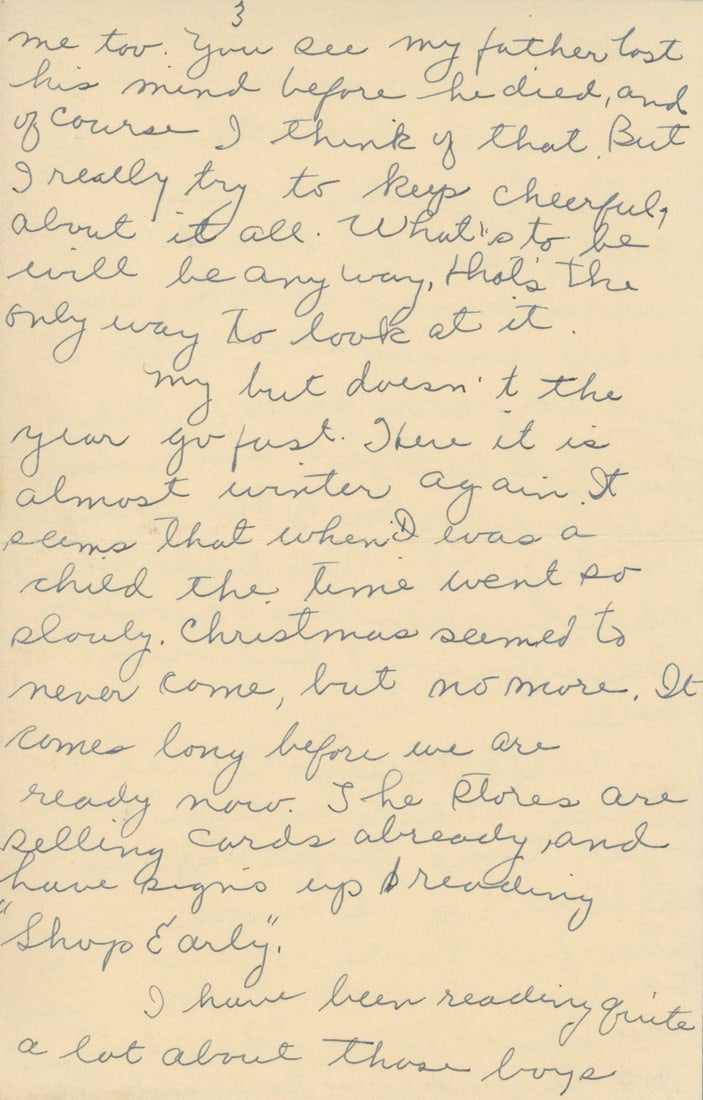 3
me too. You see my father lost
his mind before he died, and
of course I think of that. But
I really try to keep cheerful,
about it all. What's to be
will be any way, that's the
only way to look at it.
My but doesn't the
year go fast. Here it is
almost winter again. It
seems that when I was a
child the time went so
slowly. Christmas seemed to
never come, but no more. It
comes long before we are
ready now. The stores are
selling cards already, and
have signs up reading
"Shop Early".
I have been reading quite
a lot about those boys